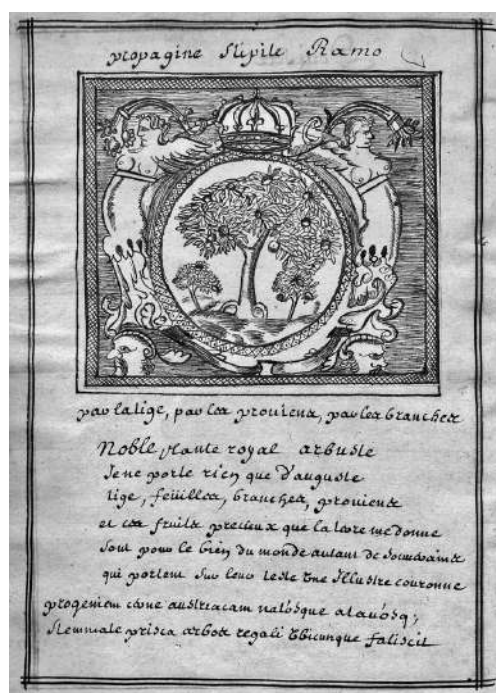 propagine Stipite Ramo
par la tige, par les prouiens, par les branches
Noble plante royal arbuste
Je ne porte rien que d'auguste
tige, feüilles, branches, prouiens
et ces fruits precieux que la terre me donne
Sont pour le bien du monde autant de Souuerains
qui portent Sur leur teste Une Illustre couronne
progeniem cerne austriacam natósque atauósq;
Stemmate prisca arbos regali Ubicunque